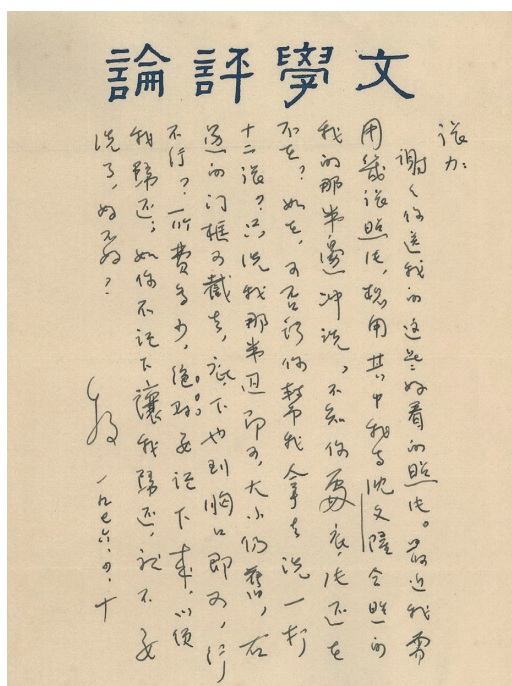 文學評論
張力:
謝々你送我的這些好看的照片。最近我需
用幾張照片,想用其中我与沈文隆合照的
我的那半邊沖洗,不知你處底片还在
不在?如在,可否託你幫我拿去洗一打
十二張?只洗我那半边即可,大小仍舊,右
邊的门框可截去,底下也到胸口即可,行
不行?所費多少,絕對要記下來,以便
我歸还,如你不記下讓我歸还,就不要
洗了,好不好?
一九七六.四.十